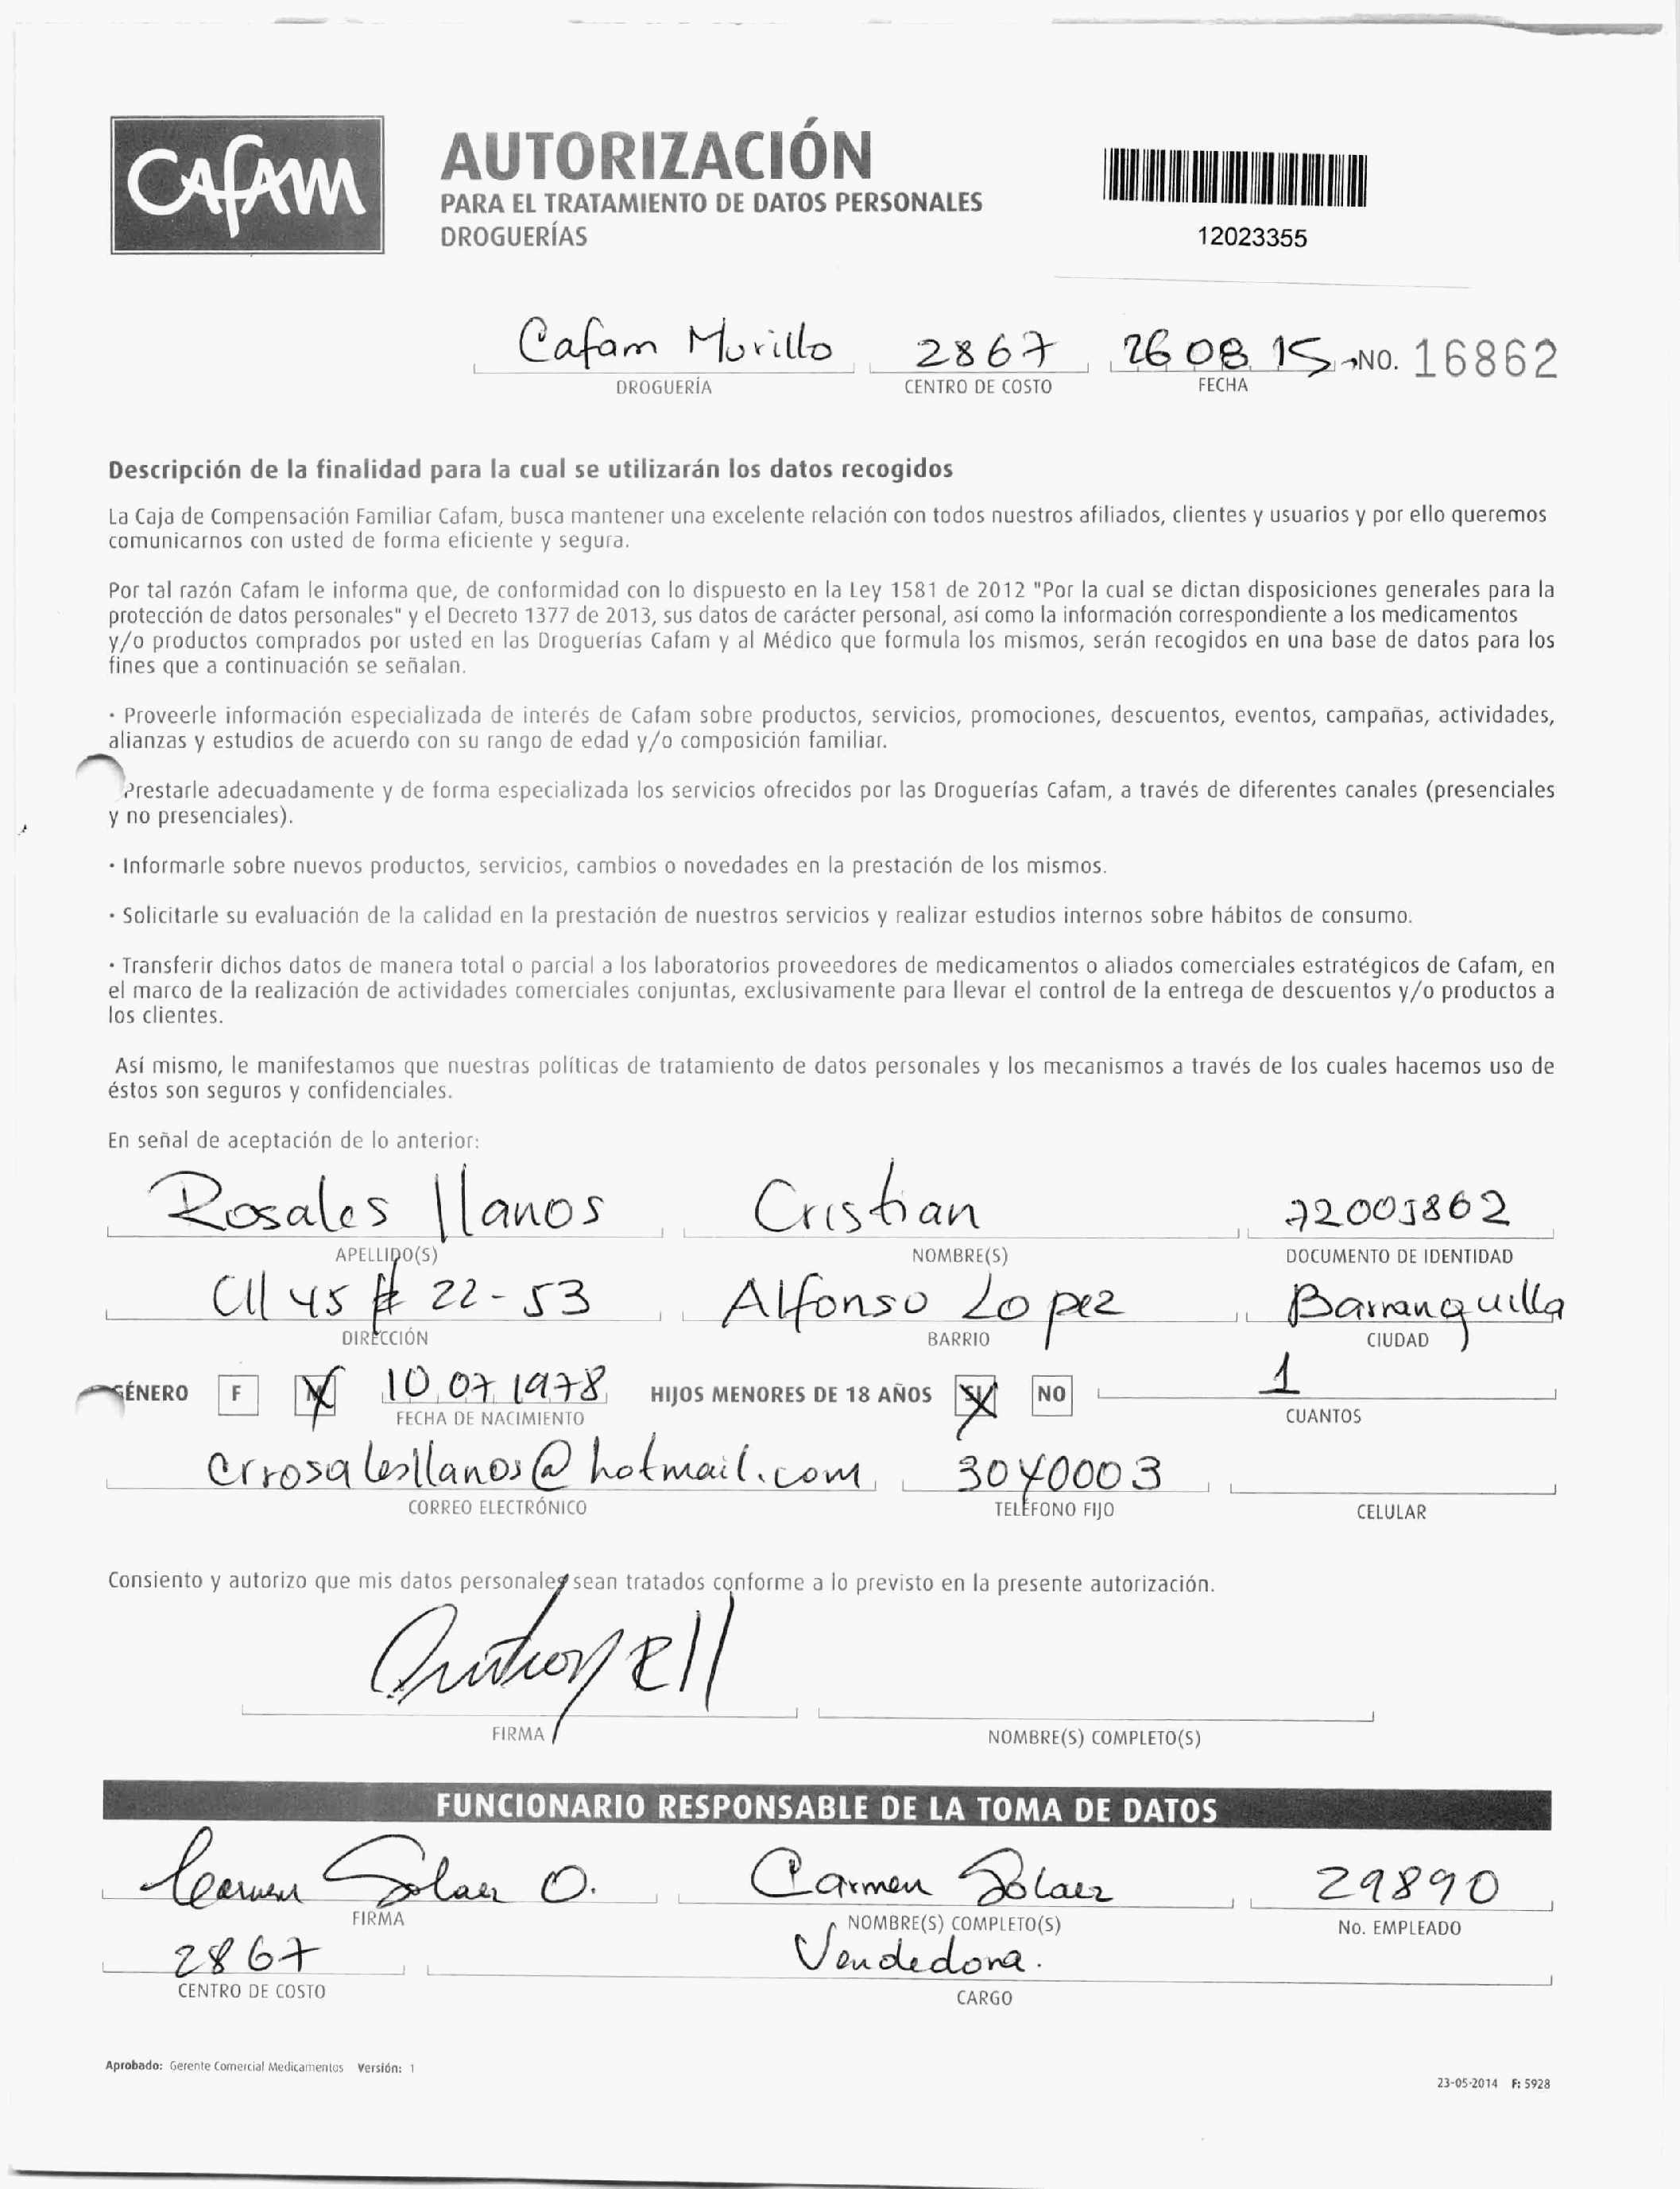 CAFAM
AUTORIZACIÓN
PARA EL TRATAMIENTO DE DATOS PERSONALES
DROGUERÍAS
12023355
Cafam Murillo 2867 26 08 15 NO. 16862
DROGUERÍA CENTRO DE COSTO FECHA
Descripción de la finalidad para la cual se utilizarán los datos recogidos
La Caja de Compensación Familiar Cafam, busca mantener una excelente relación con todos nuestros afiliados, clientes y usuarios y por ello queremos
comunicarnos con usted de forma eficiente y segura.
Por tal razón Cafam le informa que, de conformidad con lo dispuesto en la Ley 1581 de 2012 "Por la cual se dictan disposiciones generales para la
protección de datos personales" y el Decreto 1377 de 2013, sus datos de carácter personal, así como la información correspondiente a los medicamentos
y/o productos comprados por usted en las Droguerías Cafam y al Médico que formula los mismos, serán recogidos en una base de datos para los
fines que a continuación se señalan.
· Proveerle información especializada de interés de Cafam sobre productos, servicios, promociones, descuentos, eventos, campañas, actividades,
alianzas y estudios de acuerdo con su rango de edad y/o composición familiar.
Prestarle adecuadamente y de forma especializada los servicios ofrecidos por las Droguerías Cafam, a través de diferentes canales (presenciales
y no presenciales).
· Informarle sobre nuevos productos, servicios, cambios o novedades en la prestación de los mismos.
· Solicitarle su evaluación de la calidad en la prestación de nuestros servicios y realizar estudios internos sobre hábitos de consumo.
· Transferir dichos datos de manera total o parcial a los laboratorios proveedores de medicamentos o aliados comerciales estratégicos de Cafam, en
el marco de la realización de actividades comerciales conjuntas, exclusivamente para llevar el control de la entrega de descuentos y/o productos a
los clientes.
Así mismo, le manifestamos que nuestras políticas de tratamiento de datos personales y los mecanismos a través de los cuales hacemos uso de
éstos son seguros y confidenciales.
En señal de aceptación de lo anterior:
Rosales llanos Cristian 72005862
APELLIDO(S) NOMBRE(S) DOCUMENTO DE IDENTIDAD
Cll 45 # 22-53 Alfonso Lopez Barranquilla
DIRECCIÓN BARRIO CIUDAD
GÉNERO F M 10 07 1978 HIJOS MENORES DE 18 AÑOS SI NO 1
FECHA DE NACIMIENTO CUANTOS
crrosalesllanos@hotmail.com 3040003
CORREO ELECTRÓNICO TELÉFONO FIJO CELULAR
Consiento y autorizo que mis datos personales sean tratados conforme a lo previsto en la presente autorización.
FIRMA NOMBRE(S) COMPLETO(S)
FUNCIONARIO RESPONSABLE DE LA TOMA DE DATOS
Carmen Solaez O. Carmen Solaez 29890
FIRMA NOMBRE(S) COMPLETO(S) No. EMPLEADO
2867 Vendedora.
CENTRO DE COSTO CARGO
Aprobado: Gerente Comercial Medicamentos Versión: 1
23-05-2014 F: 5928